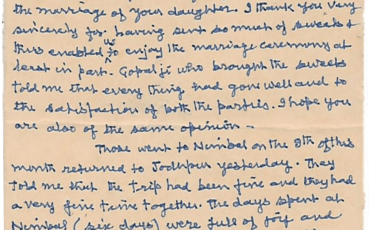 the marriage of your daughter. I thank you very
sincerely for having sent so much of sweets &
thus enabled us to enjoy the marriage ceremony at
least in part. Gopalji who brought the sweets
told me that every thing had gone well and to
the satisfaction of both the parties. I hope you
are also of the same opinion -
Those went to Nimbal on the 8th of this
month returned to Jodhpur yesterday. They
told me that the trip had been fine and they had
a very fine time together. The days spent at
Nimbal (six days) were full of joy and